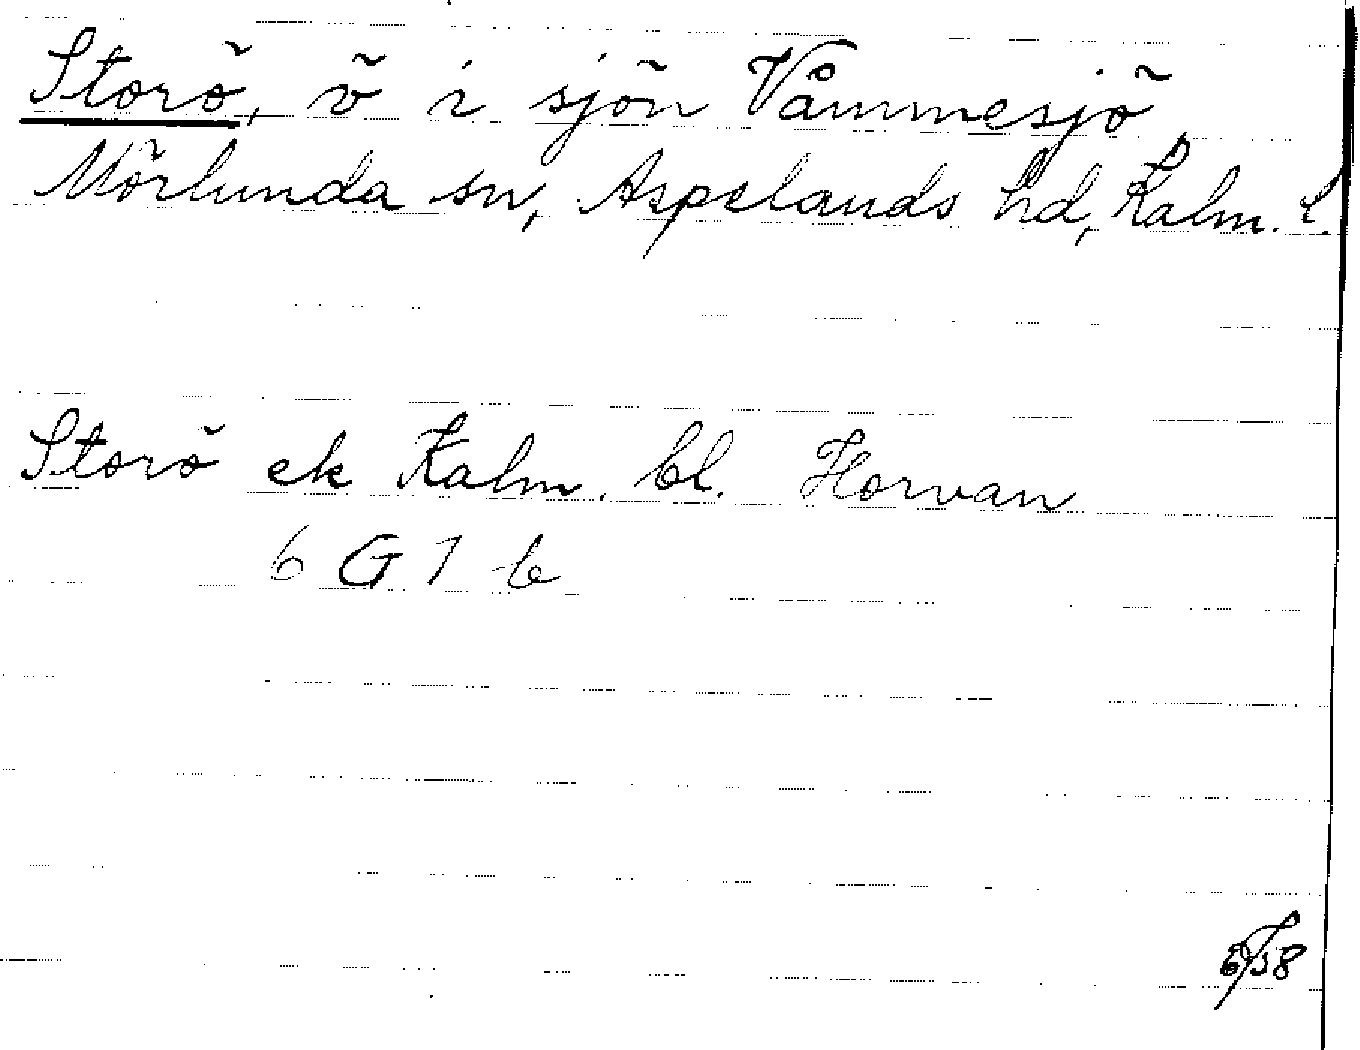 Storö, ö i sjön Våmmesjö,
Mörlunda sn, Aspelands hd, Kalm. l.
Storö ek Kalm. bl. Horvan
6 G 1 b